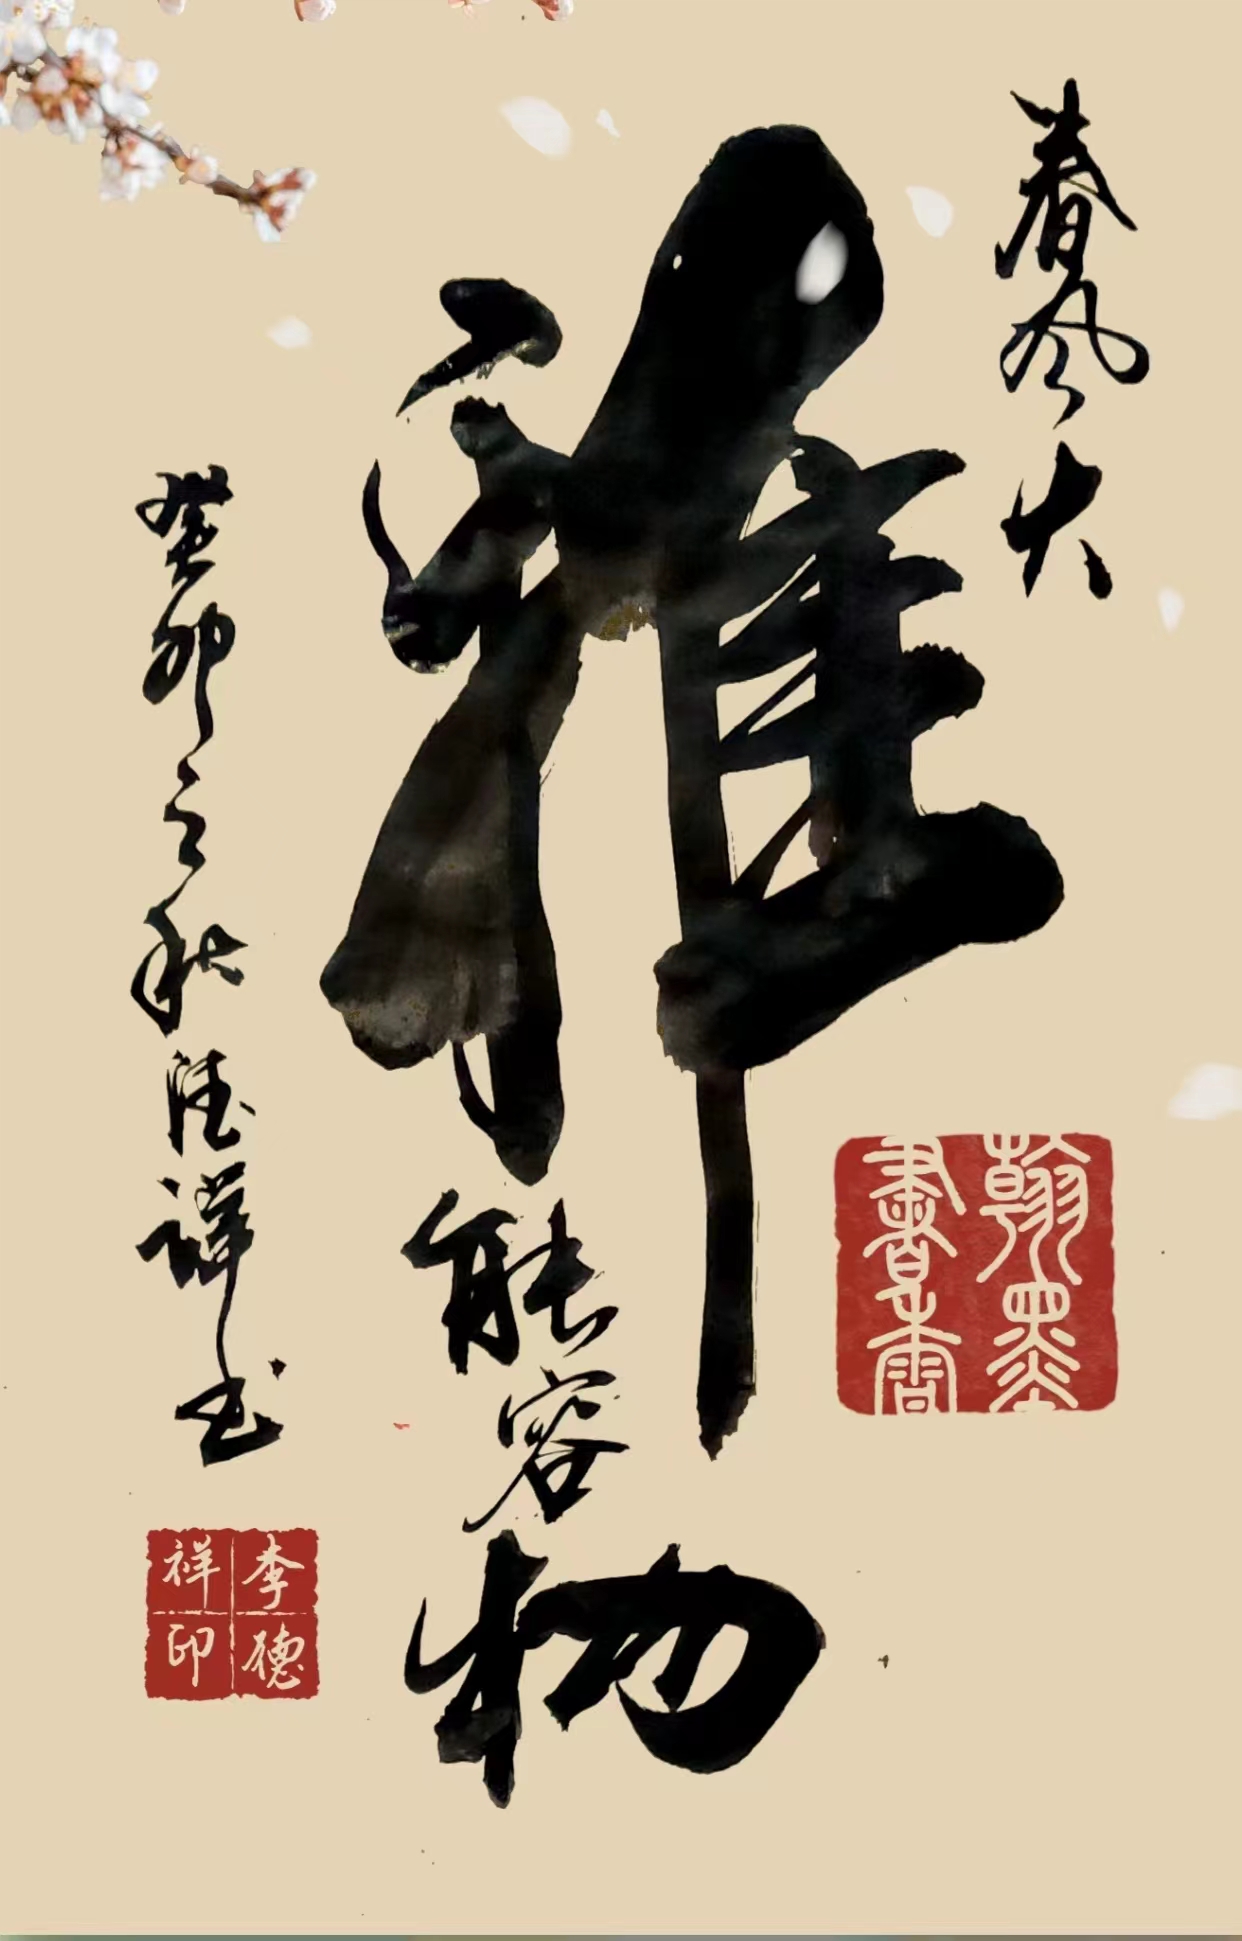 春风大
雅能容物
癸卯之秋德祥书
翰墨書香
李德祥印